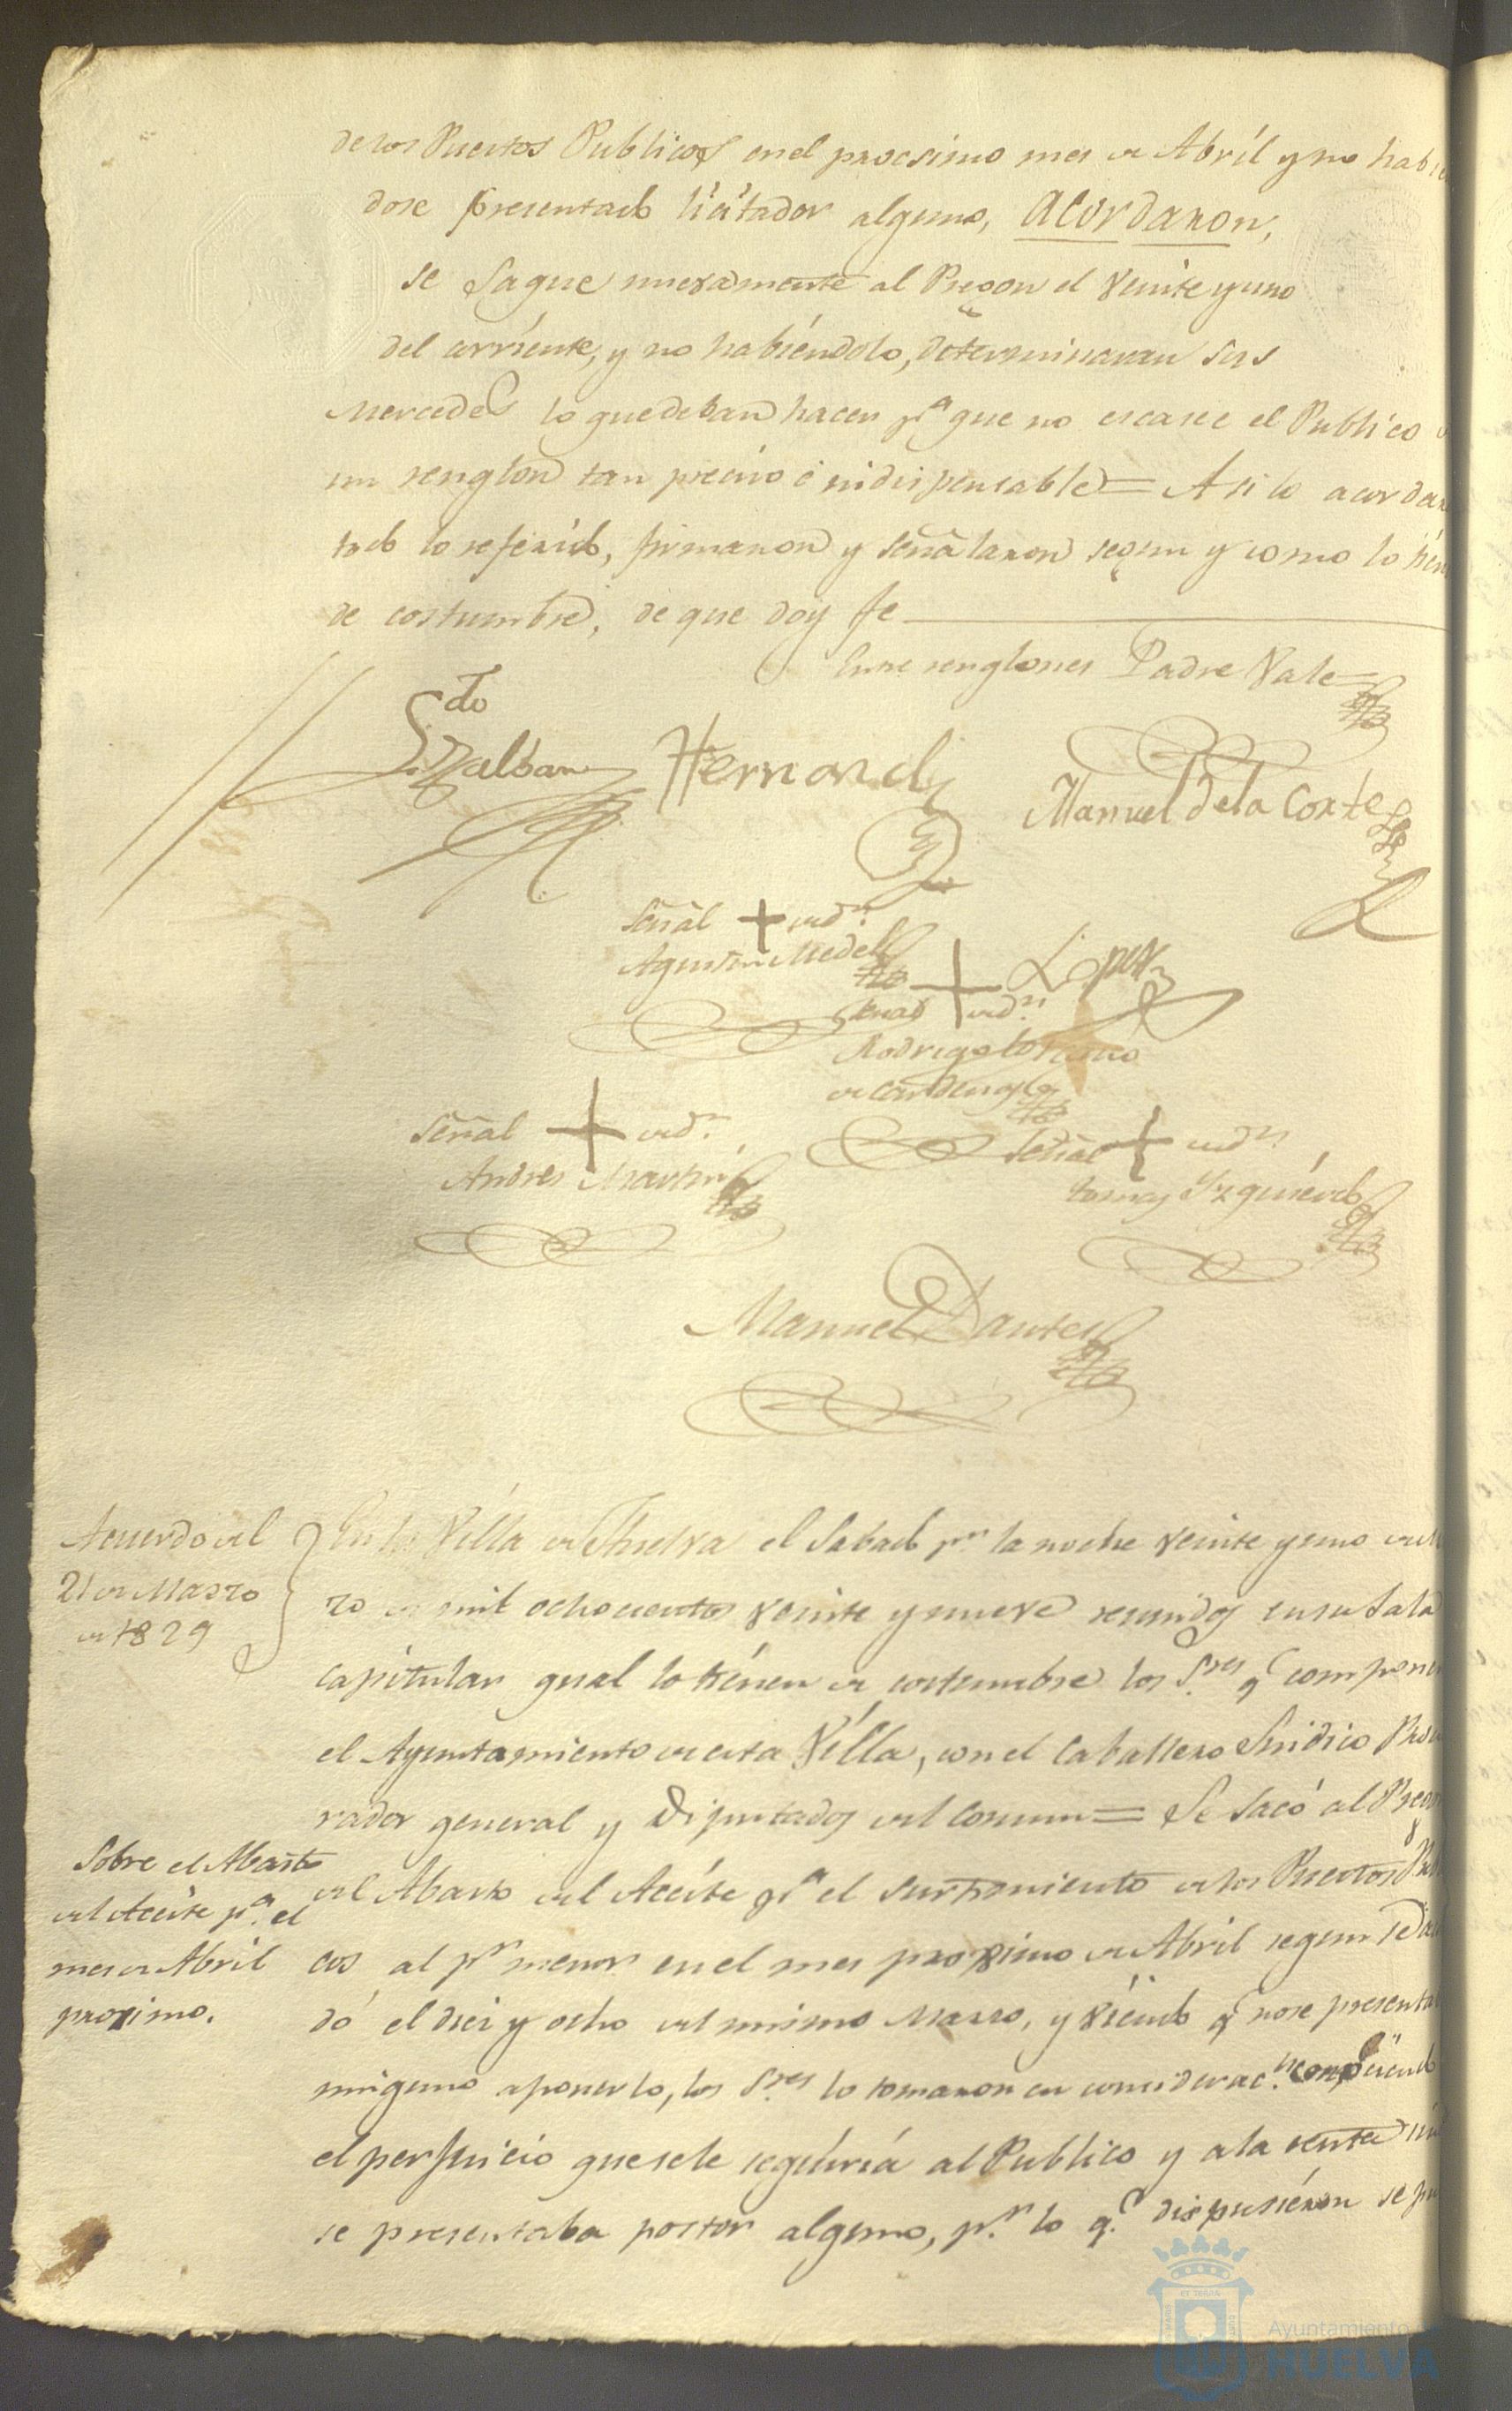 de los Puestos Publicos en el procsimo mes de Abril y no habien
dose presentado licitador alguno, acordaron,
se saque nuevamente al Pregon el veinte y uno
del corriente, y no habiendolo, determinaran sus
Mercedes lo que deban hacer pª que no escasee el Publico
un renglon tan preciso é indispensable = Asi lo acordaron
todo lo referido, firmaron y señalaron segun y como lo tienen
de costumbre, de que doy fe
Entre renglones Padre Vale
Hernand
Manuel de la Corte
Señal + de
Agustin Medel
Lopez
Señal + de
Rodrigo
Señal + de
Andres Martin
Señal + de
Tomas Yzquierdo
Manuel Dantes
Acuerdo del
21 de Marzo
de 1829
En la Villa de Huelva el Sabado pr la noche veinte y uno de Mar
zo de mil ochocientos veinte y nueve reunidos en su Sala
capitular qual lo tienen de costumbre los Sres q componen
el Ayuntamiento de esta Villa, con el Caballero Sindico Procu
rador general y Diputados del Comun = Se sacó al Pregon
Sobre el Abasto
del Aceite pª el
mes de Abril
proximo.
el Abasto del Aceite pª el surtimiento de los Puestos Publi
cos al pr menor en el mes proximo de Abril segun se acor
dó el diez y ocho del mismo Marzo, y viendo q no se presentaba
ninguno aponerlo, los Sres lo tomaron en consideracn
el perjuicio que se le seguiria al Publico y a la renta
se presentaba postor alguno, pr lo q dispusieron se
Ayuntamiento
HUELVA